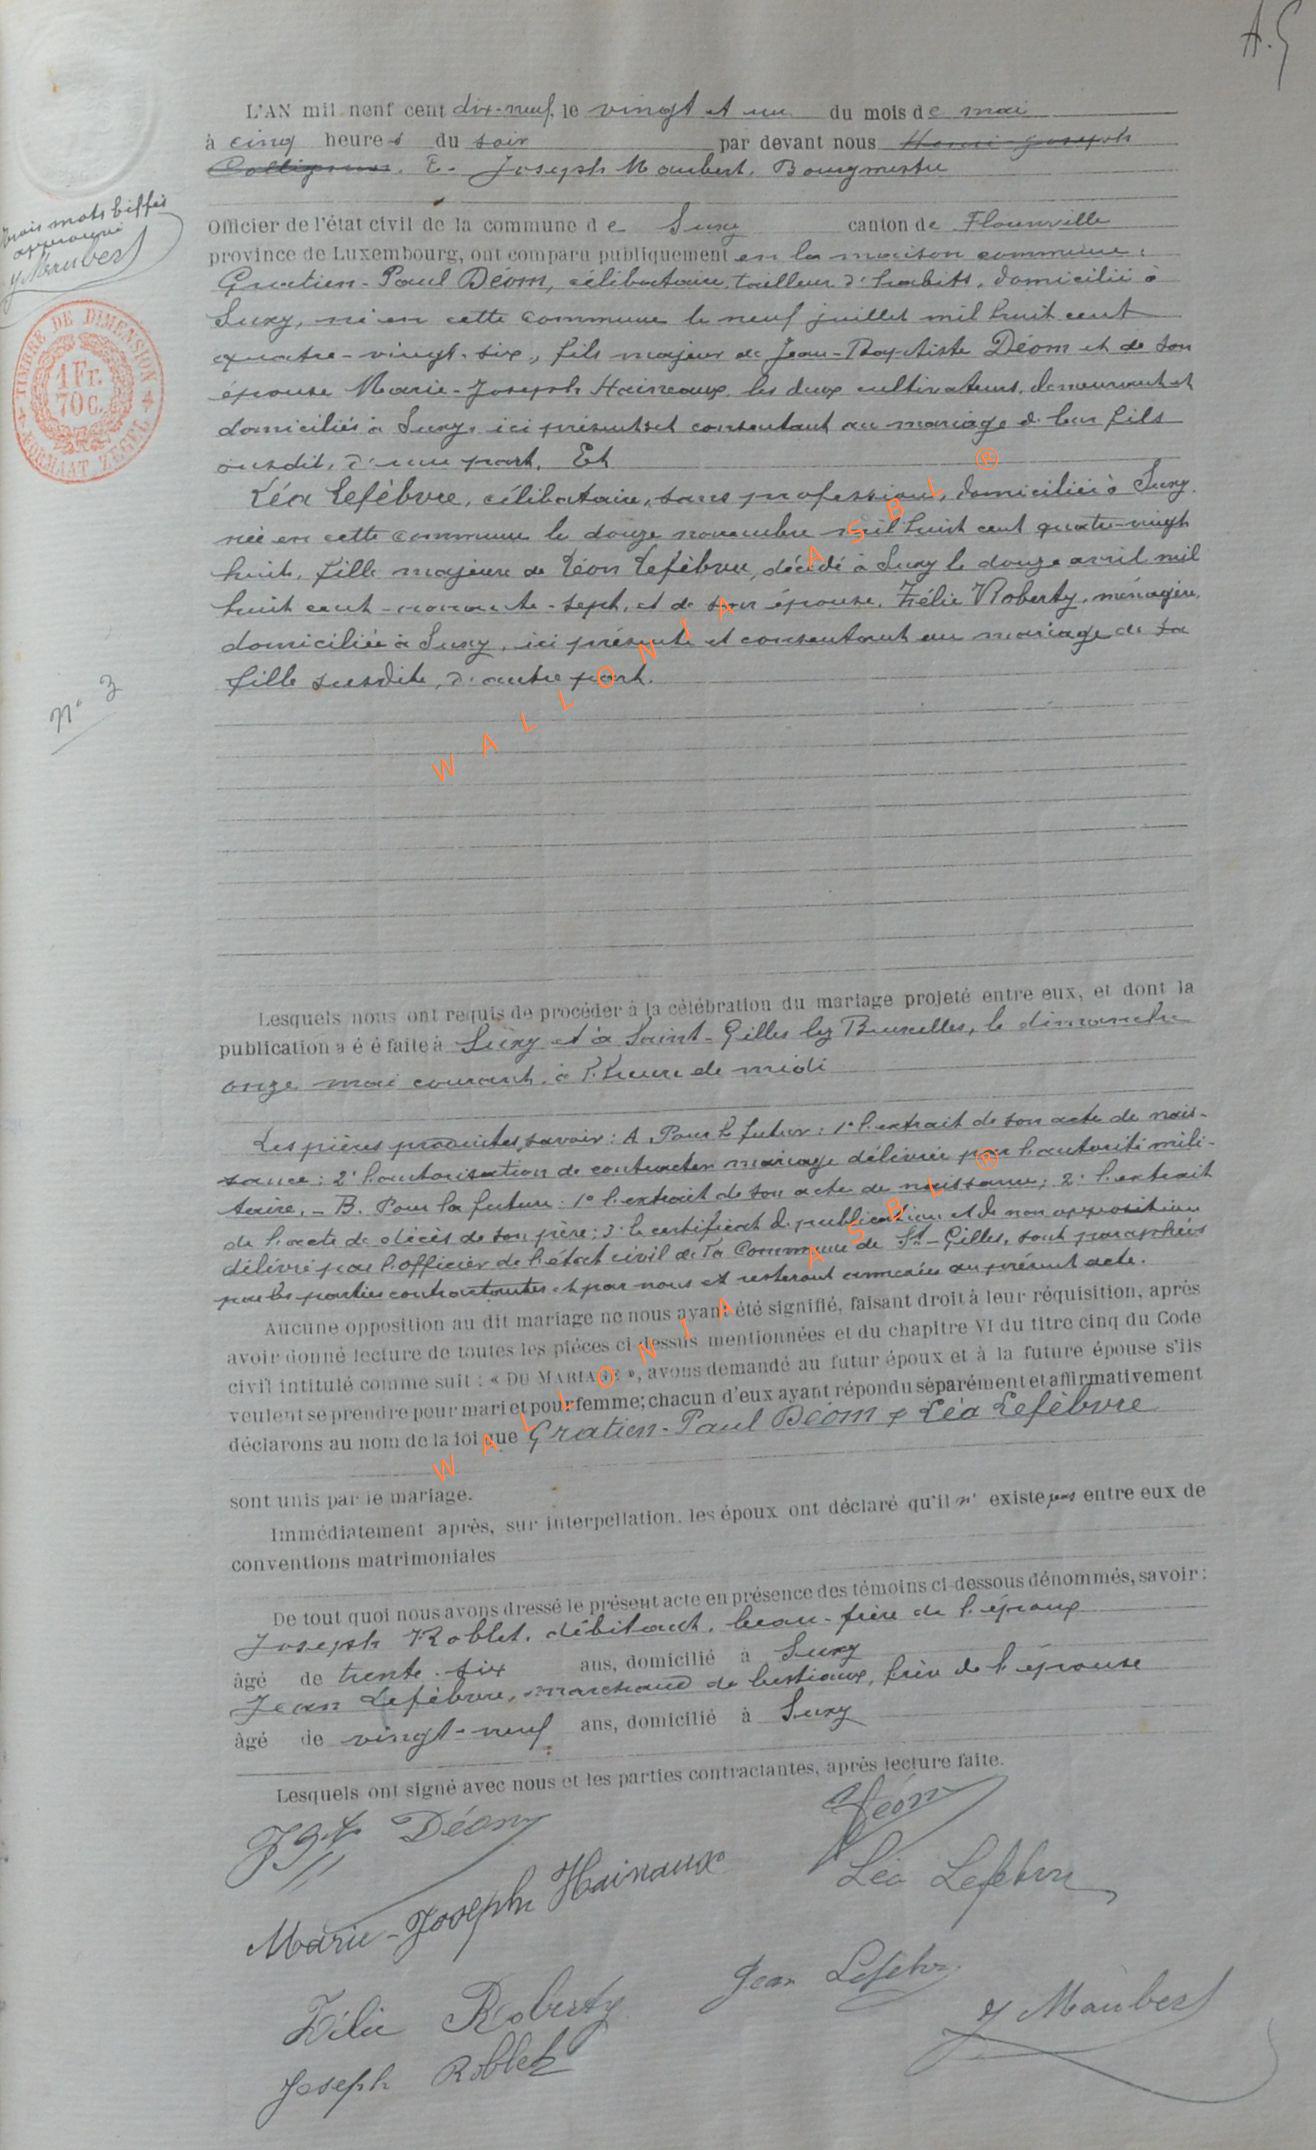 A.G
L'AN mil neuf cent dix-neuf, le vingt et un du mois de mai
à cinq heures du soir par devant nous Henri-Joseph
Collignon. E. Joseph Maubert, Bourgmestre
Trois mots biffés
approuvé
J Maubert
Officier de l'état civil de la commune de Suxy canton de Florenville
province de Luxembourg, ont comparu publiquement en la maison commune :
Gratien-Paul Déom, célibataire, tailleur d'habits, domicilié à
Suxy, né en cette commune le neuf juillet mil huit cent
quatre-vingt-six, fils majeur de Jean-Baptiste Déom et de son
épouse Marie-Joseph Hainaux, les deux cultivateurs, demeurant et
domiciliés à Suxy, ici présents et consentant au mariage de leur fils
susdit, d'une part. Et
Léa Lefèbvre, célibataire, sans profession, domiciliée à Suxy,
née en cette commune le douze novembre mil huit cent quatre-vingt
huit, fille majeure de Léon Lefèbvre, décédé à Suxy le douze avril mil
huit cent-nonante-sept, et de son épouse, Zélie Roberty, ménagère,
domiciliée à Suxy, ici présente et consentant au mariage de sa
fille susdite, d'autre part.
TIMBRE DE DIMENSION 4
1 Fr.
70 C.
4 FORMAAT ZEGEL
N° 3
WALLONIA ASBL ®
Lesquels nous ont requis de procéder à la célébration du mariage projeté entre eux, et dont la
publication a é é faite à Suxy et à Saint-Gilles lez Bruxelles, le dimanche
onze mai courant, à l'heure de midi
Les pièces produites, savoir : A Pour le futur : 1° l'extrait de son acte de nais-
sance ; 2° l'autorisation de contracter mariage délivrée par l'autorité mili-
taire. - B. Pour la future : 1° l'extrait de son acte de naissance ; 2° l'extrait
de l'acte de décès de son père ; 3° le certificat de publication et de non opposition
délivré par l'officier de l'état civil de la Commune de St-Gilles, sont paraphées
par les parties contractantes et par nous et resteront annexées au présent acte.
Aucune opposition au dit mariage ne nous ayant été signifié, faisant droit à leur réquisition, après
avoir donné lecture de toutes les pièces ci dessus mentionnées et du chapitre VI du titre cinq du Code
civil intitulé comme suit : « DU MARIAGE », avons demandé au futur époux et à la future épouse s'ils
veulent se prendre pour mari et pour femme; chacun d'eux ayant répondu séparément et affirmativement
déclarons au nom de la loi que Gratien-Paul Déom & Léa Lefèbvre
WALLONIA ASBL ®
sont unis par le mariage.
Immédiatement après, sur interpellation, les époux ont déclaré qu'il n'existe pas entre eux de
conventions matrimoniales
De tout quoi nous avons dressé le présent acte en présence des témoins ci-dessous dénommés, savoir :
Joseph Roblet, débitant, beau-frère de l'époux
âgé de trente-six ans, domicilié à Suxy
Jean Lefèbvre, marchand de bestiaux, frère de l'épouse
âgé de vingt-neuf ans, domicilié à Suxy
Lesquels ont signé avec nous et les parties contractantes, après lecture faite.
JBte Déom
G Déom
Léa Lefebvre
Marie-Joseph Hainaux
Jean Lefebv.
Zélie Roberty
J Maubert
Joseph Roblet